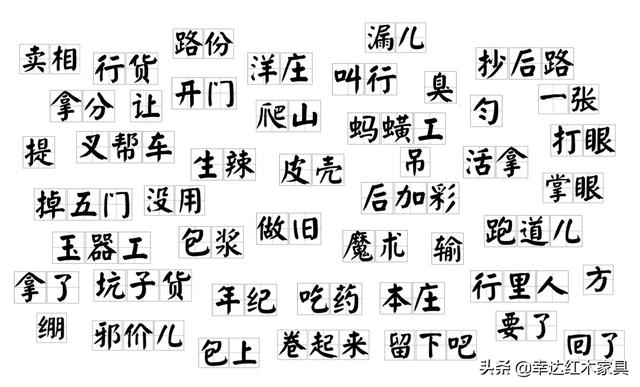 卖相 行货 路份 洋庄 叫行 漏儿 臭 抄后路
拿分 让 开门 爬山 蚂蟥工 勻 一张
提 叉帮车 生辣 皮壳 吊 活拿 打眼
掉五门 没用 做旧 后加彩 掌眼
玉器工 包浆 魔术 输 跑道儿
拿了 坑子货 年纪 吃药 本庄 行里人 方
绷 邪价儿 包上 卷起来 留下吧 要了 回了
头条 @幸达红木家具